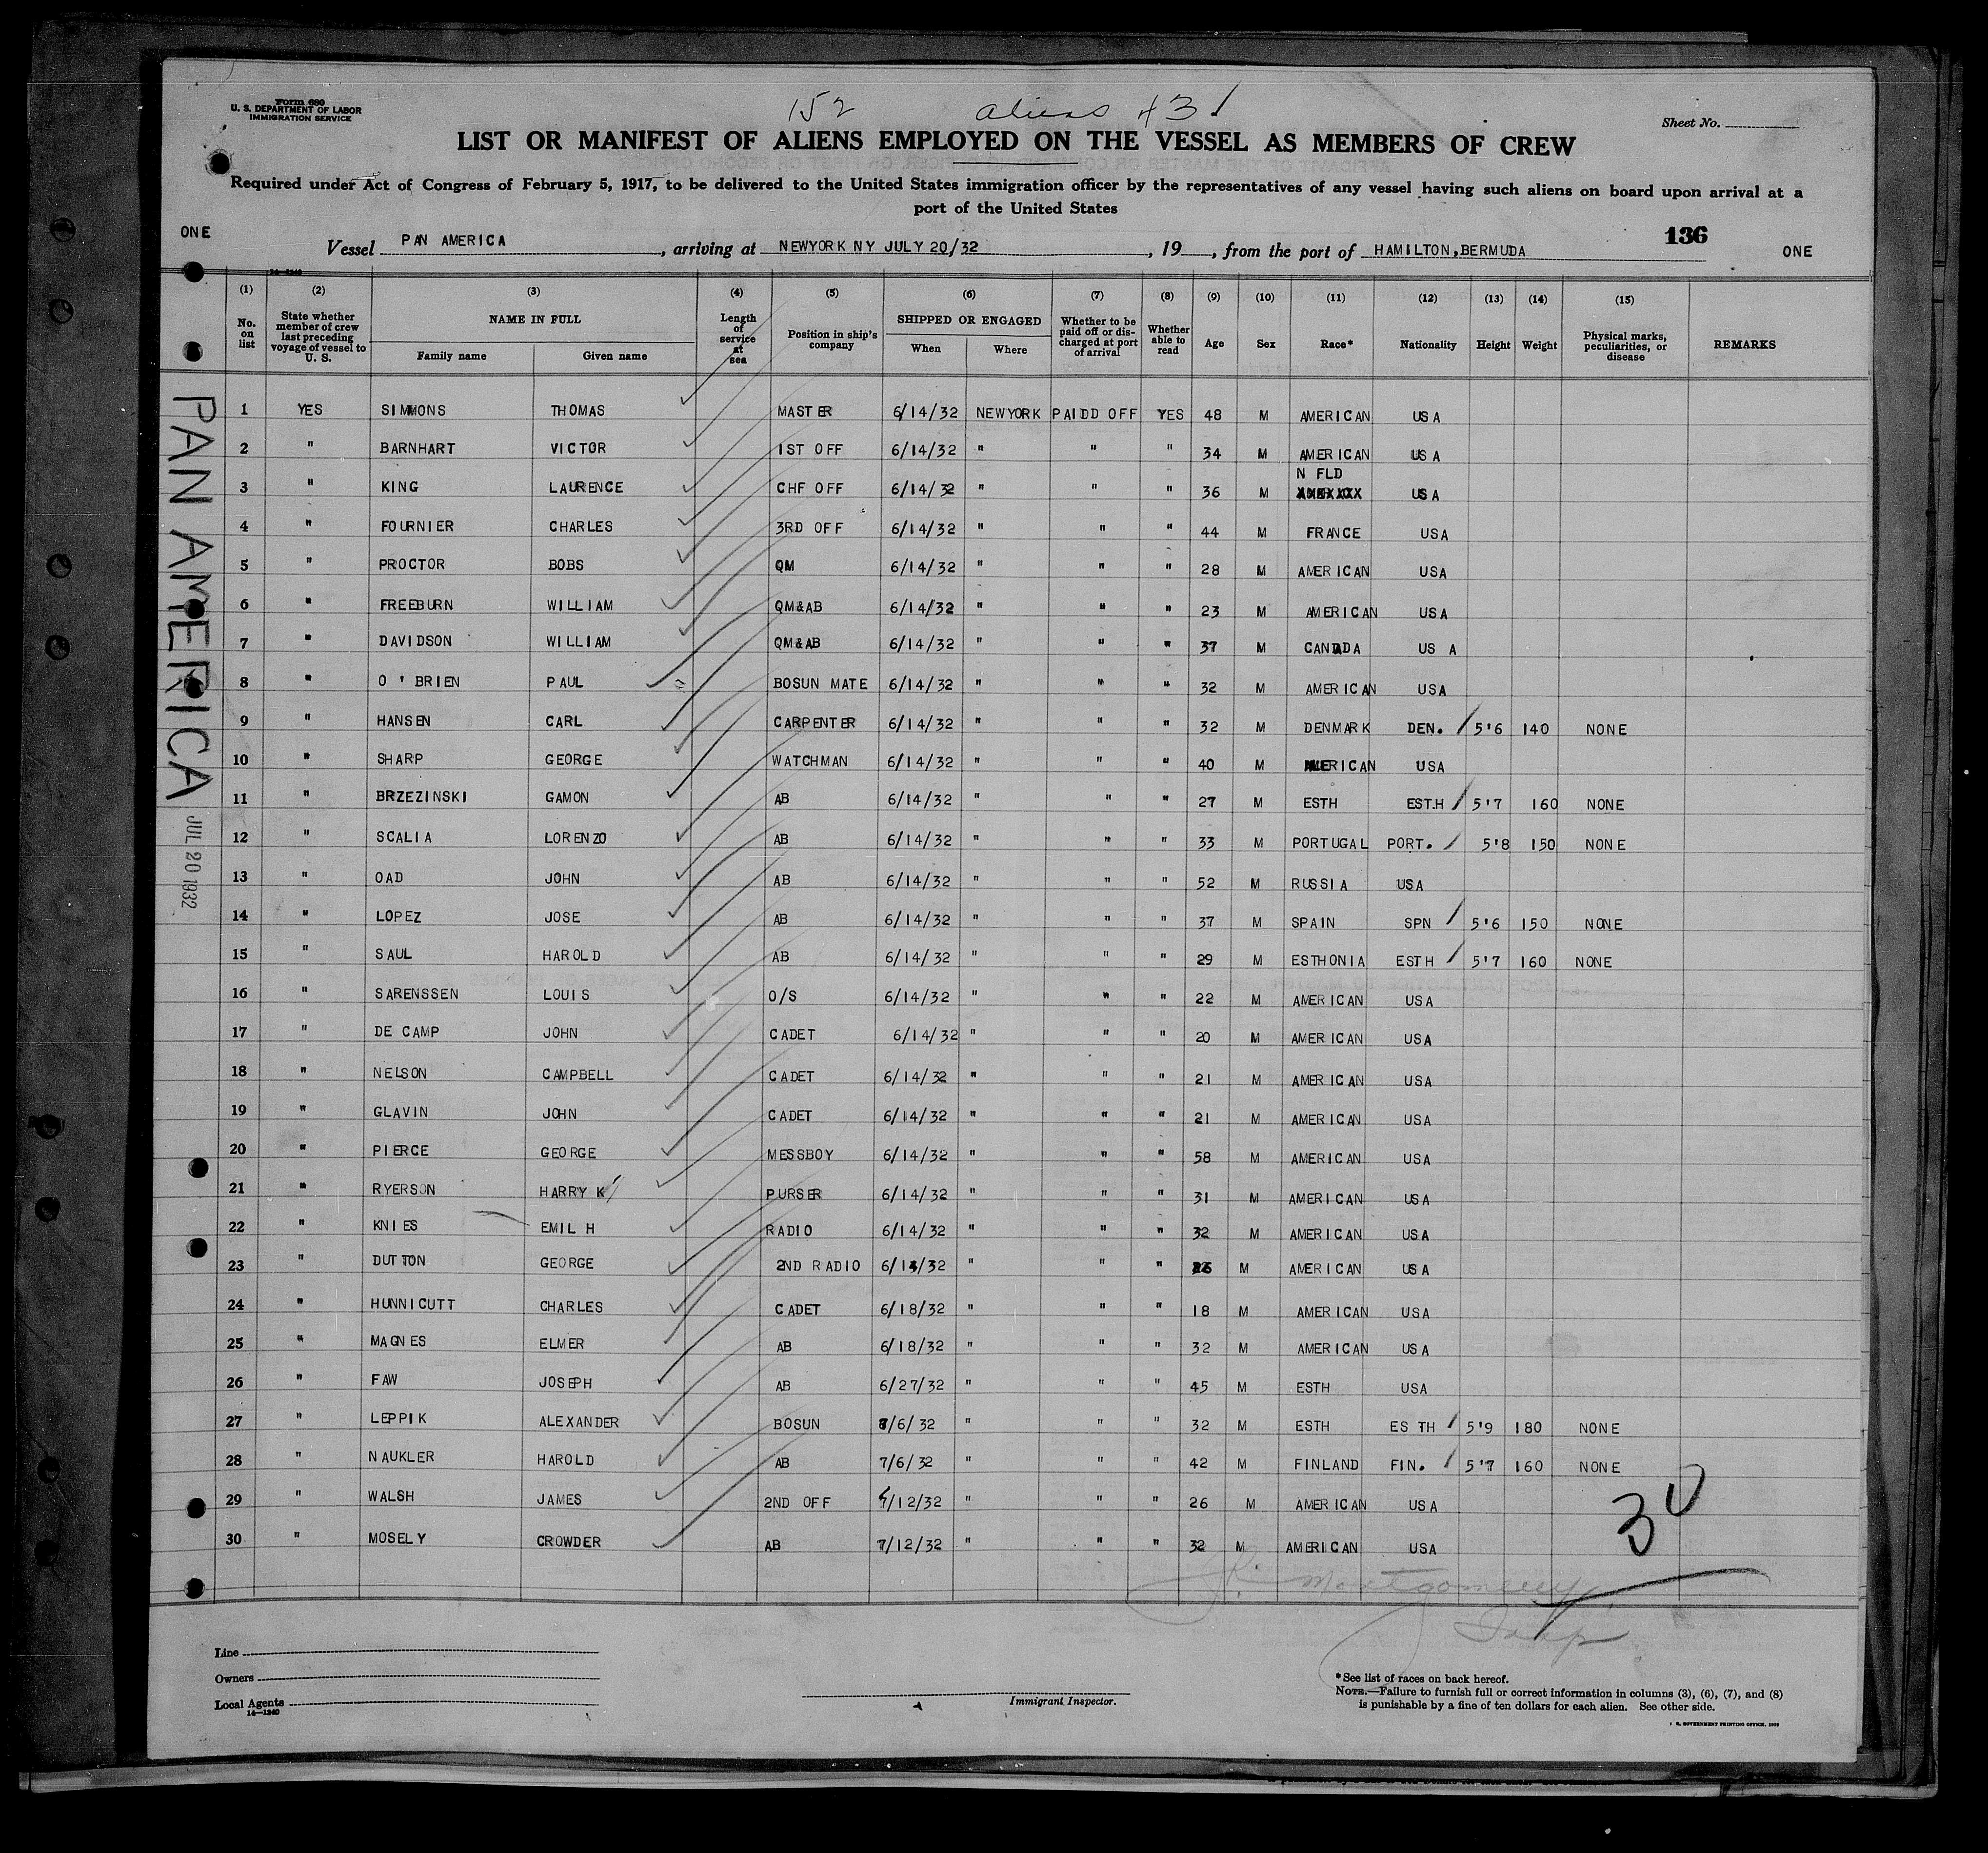 Form 680
U. S. DEPARTMENT OF LABOR
IMMIGRATION SERVICE
152 aliens 43
Sheet No.
LIST OR MANIFEST OF ALIENS EMPLOYED ON THE VESSEL AS MEMBERS OF CREW
Required under Act of Congress of February 5, 1917, to be delivered to the United States immigration officer by the representatives of any vessel having such aliens on board upon arrival at a
port of the United States
ONE
136
Vessel PAN AMERICA, arriving at NEWYORK NY JULY 20/32, 19, from the port of HAMILTON,BERMUDA ONE
14-1240
(1) (2) (3) (4) (5) (6) (7) (8) (9) (10) (11) (12) (13) (14) (15)
No. on list State whether member of crew last preceding voyage of vessel to U. S. NAME IN FULL Family name Given name Length of service at sea Position in ship's company SHIPPED OR ENGAGED When Where Whether to be paid off or discharged at port of arrival Whether able to read Age Sex Race* Nationality Height Weight Physical marks, peculiarities, or disease REMARKS
PAN AMERICA
JUL 20 1932
1 YES SIMMONS THOMAS MASTER 6/14/32 NEWYORK PAIDD OFF YES 48 M AMERICAN USA
2 " BARNHART VICTOR 1ST OFF 6/14/32 " " " 34 M AMERICAN USA
3 " KING LAURENCE CHF OFF 6/14/32 " " " 36 M N FLD USA
4 " FOURNIER CHARLES 3RD OFF 6/14/32 " " " 44 M FRANCE USA
5 " PROCTOR BOBS QM 6/14/32 " " " 28 M AMERICAN USA
6 " FREEBURN WILLIAM QM&AB 6/14/32 " " " 23 M AMERICAN USA
7 " DAVIDSON WILLIAM QM&AB 6/14/32 " " " 37 M CANADA US A
8 " O ' BRIEN PAUL BOSUN MATE 6/14/32 " " " 32 M AMERICAN USA
9 " HANSEN CARL CARPENTER 6/14/32 " " " 32 M DENMARK DEN. 5'6 140 NONE
10 " SHARP GEORGE WATCHMAN 6/14/32 " " " 40 M AMERICAN USA
11 " BRZEZINSKI GAMON AB 6/14/32 " " " 27 M ESTH EST.H 5'7 160 NONE
12 " SCALIA LORENZO AB 6/14/32 " " " 33 M PORTUGAL PORT. 5'8 150 NONE
13 " OAD JOHN AB 6/14/32 " " " 52 M RUSSIA USA
14 " LOPEZ JOSE AB 6/14/32 " " " 37 M SPAIN SPN 5'6 150 NONE
15 " SAUL HAROLD AB 6/14/32 " " " 29 M ESTHONIA ESTH 5'7 160 NONE
16 " SARENSSEN LOUIS O/S 6/14/32 " " " 22 M AMERICAN USA
17 " DE CAMP JOHN CADET 6/14/32 " " " 20 M AMERICAN USA
18 " NELSON CAMPBELL CADET 6/14/32 " " " 21 M AMERICAN USA
19 " GLAVIN JOHN CADET 6/14/32 " " " 21 M AMERICAN USA
20 " PIERCE GEORGE MESSBOY 6/14/32 " " " 58 M AMERICAN USA
21 " RYERSON HARRY K PURSER 6/14/32 " " " 31 M AMERICAN USA
22 " KNIES EMIL H RADIO 6/14/32 " " " 32 M AMERICAN USA
23 " DUTTON GEORGE 2ND RADIO 6/14/32 " " " M AMERICAN USA
24 " HUNNICUTT CHARLES CADET 6/18/32 " " " 18 M AMERICAN USA
25 " MAGNES ELMER AB 6/18/32 " " " 32 M AMERICAN USA
26 " FAW JOSEPH AB 6/27/32 " " " 45 M ESTH USA
27 " LEPPIK ALEXANDER BOSUN /6/32 " " " 32 M ESTH ESTH 5'9 180 NONE
28 " NAUKLER HAROLD AB 7/6/32 " " " 42 M FINLAND FIN. 5'7 160 NONE
29 " WALSH JAMES 2ND OFF /12/32 " " " 26 M AMERICAN USA
30 " MOSELY CROWDER AB 7/12/32 " " " 32 M AMERICAN USA
30
Montgomery
Insp
Line
Owners
Local Agents
14-1240
Immigrant Inspector.
*See list of races on back hereof.
NOTE.—Failure to furnish full or correct information in columns (3), (6), (7), and (8)
is punishable by a fine of ten dollars for each alien. See other side.
U. S. GOVERNMENT PRINTING OFFICE.